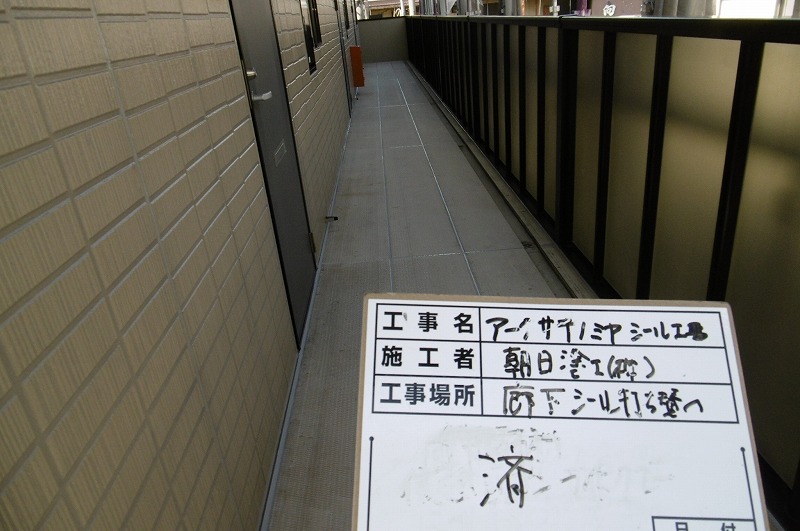 工事名 アーノサイノミヤ シール工事
施工者 朝日塗工(株)
工事場所 廊下シール打ち替へ
済
日付